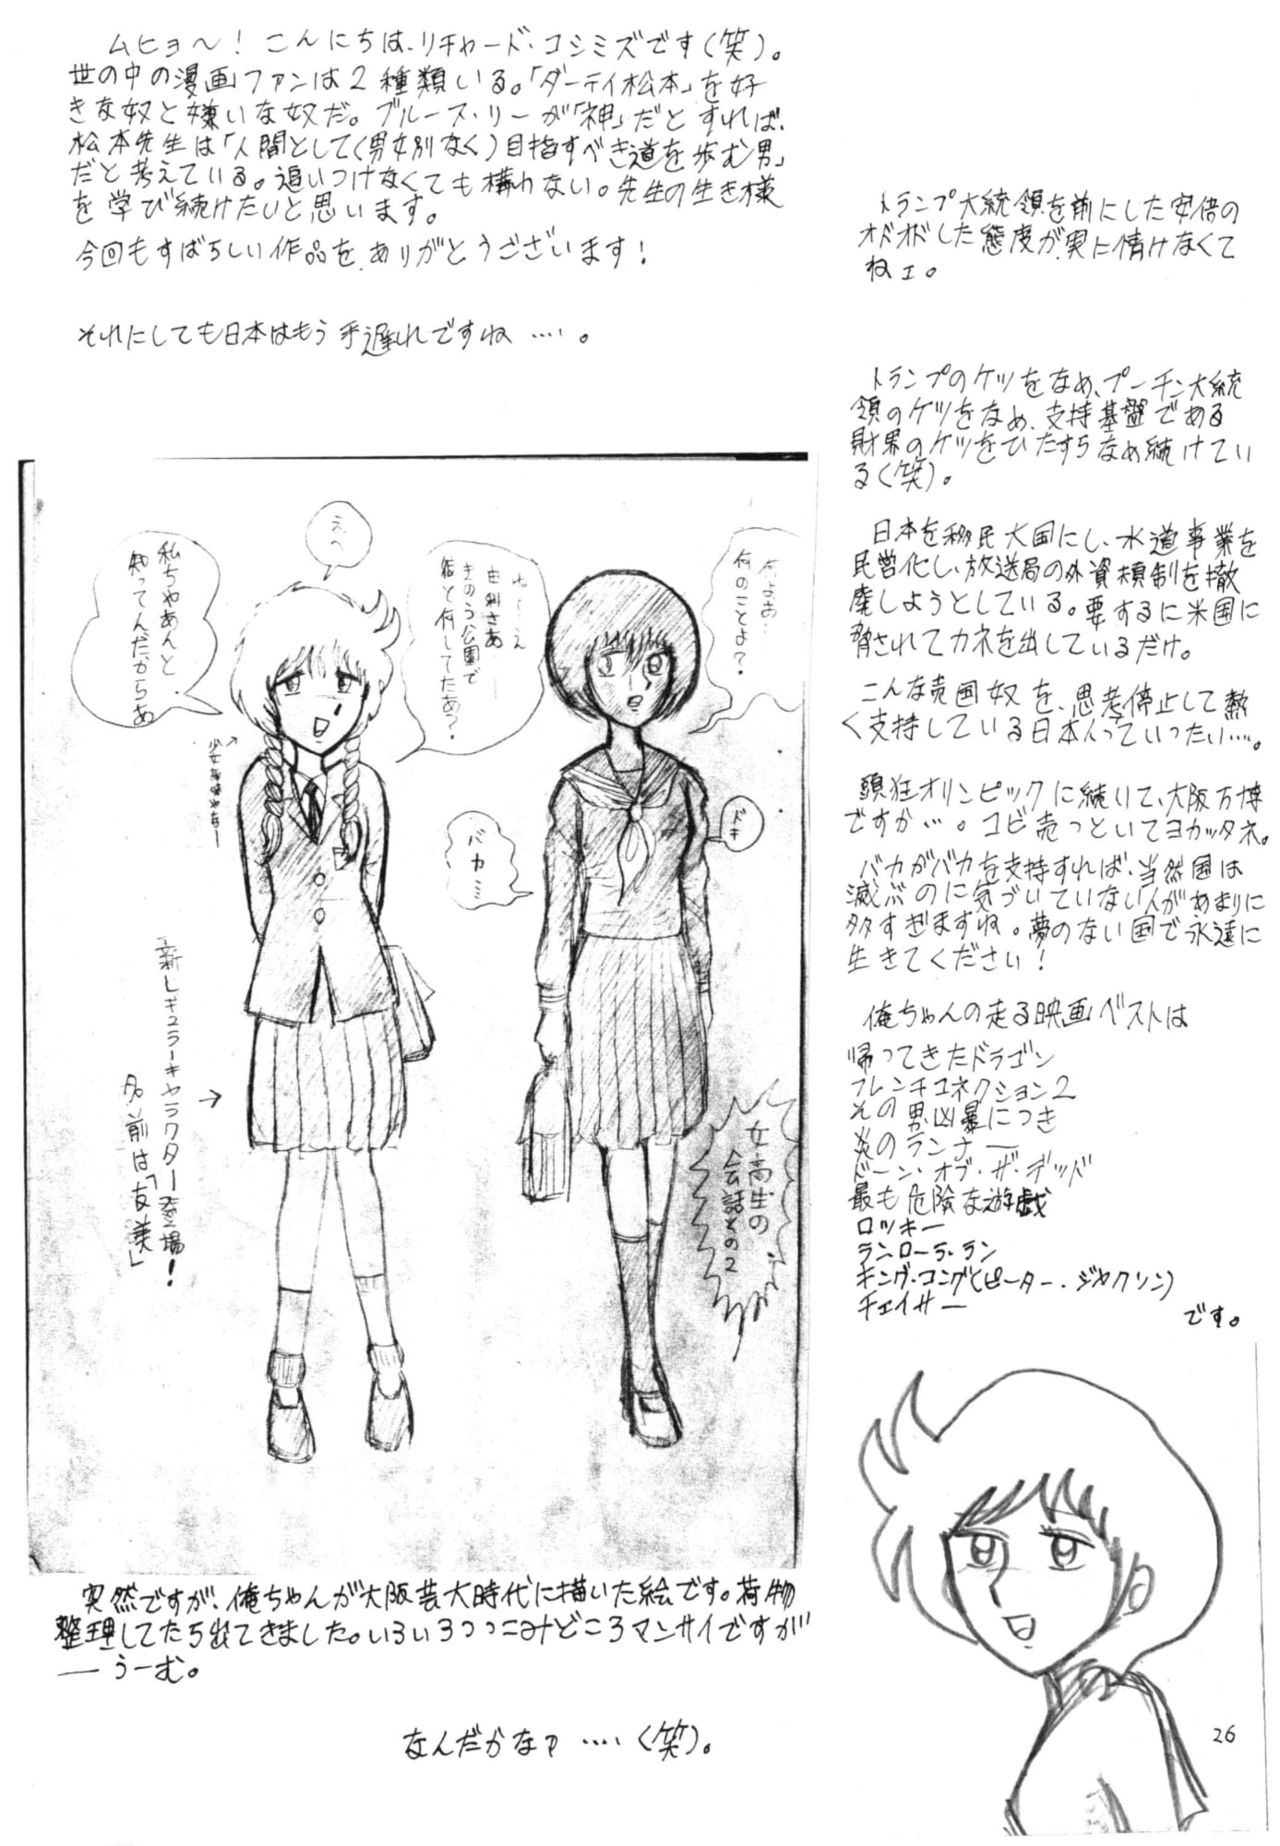 ムヒョ〜！こんにちは、リチャード・コシミズです（笑）。
世の中の漫画ファンは2種類いる。「ダーティ松本」を好
きな奴と嫌いな奴だ。ブルース・リーが「神」だとすれば、
松本先生は「人間として（男女別なく）目指すべき道を歩む男」
だと考えている。追いつけなくても構わない。先生の生き様
を学び続けたいと思います。
今回もすばらしい作品を、ありがとうございます！
それにしても日本はもう手遅れですね‥‥。
えへ
私ちゃあんと
知ってんだからぁ
ねーえ
由利さあ
きのう公園で
彼と何してたあ？
何よお…
何のことよ？
ドキ
バカ…
新レギュラーキャラクター登場！
名前は「友美」
→
女高生の
会話その2
突然ですが、俺ちゃんが大阪芸大時代に描いた絵です。荷物
整理してたら出てきました。いろいろつっこみどころマンサイですが
――うーむ。
なんだかなァ‥‥（笑）。
トランプ大統領を前にした安倍の
オドオドした態度が、実に情けなくて
ねェ。
トランプのケツをなめ、プーチン大統
領のケツをなめ、支持基盤である
財界のケツをひたすらなめ続けてい
る（笑）。
日本を移民大国にし、水道事業を
民営化し、放送局の外資規制を撤
廃しようとしている。要するに米国に
脅されてカネを出しているだけ。
こんな売国奴を、思考停止して熱
く支持している日本人っていったい‥‥。
頭狂オリンピックに続いて、大阪万博
ですか…。コビ売っといてヨカッタネ。
バカがバカを支持すれば、当然国は
滅ぶのに気づいていない人があまりに
多すぎますね。夢のない国で永遠に
生きてください！
俺ちゃんの走る映画ベストは
帰ってきたドラゴン
フレンチコネクション2
その男凶暴につき
炎のランナー
ドーン・オブ・ザ・デッド
最も危険な遊戯
ロッキー
ラン・ローラ・ラン
キング・コング（ピーター・ジャクソン）
チェイサー
です。
26